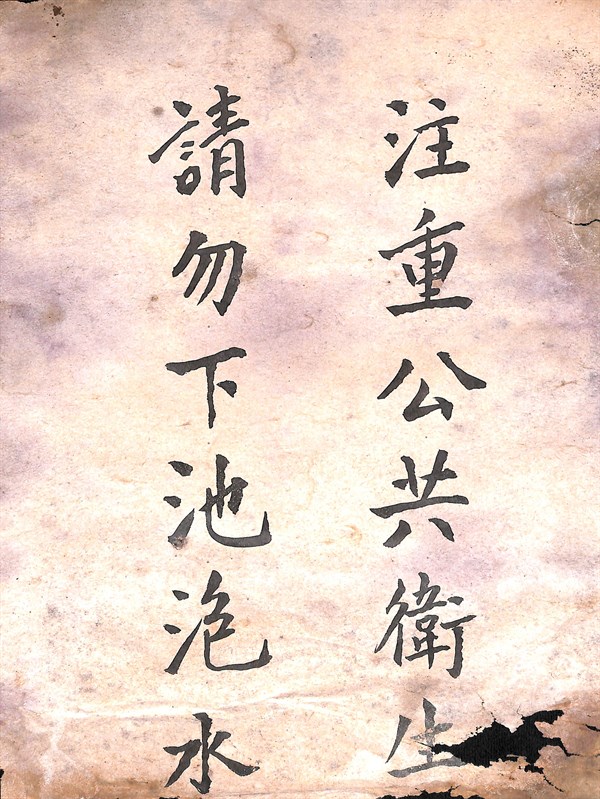 注重公共衛生
請勿下池泡水